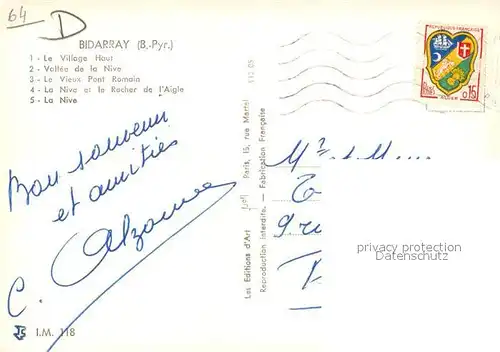 64 D
BIDARRAY (B.-Pyr.)
1 - Le Village Haut
2 - Vallée de la Nive
3 - Le Vieux Pont Romain
4 - La Nive et le Rocher de l'Aigle
5 - La Nive
Bon souvenir
et amitiés
C.
I.M. 118
Les Editions d'Art (Jof) Paris, 15, rue Martel
Reproduction interdite. — Fabrication Française
REPUBLIQUE FRANÇAISE
0,15
ALGER
privacy protection
Datenschutz